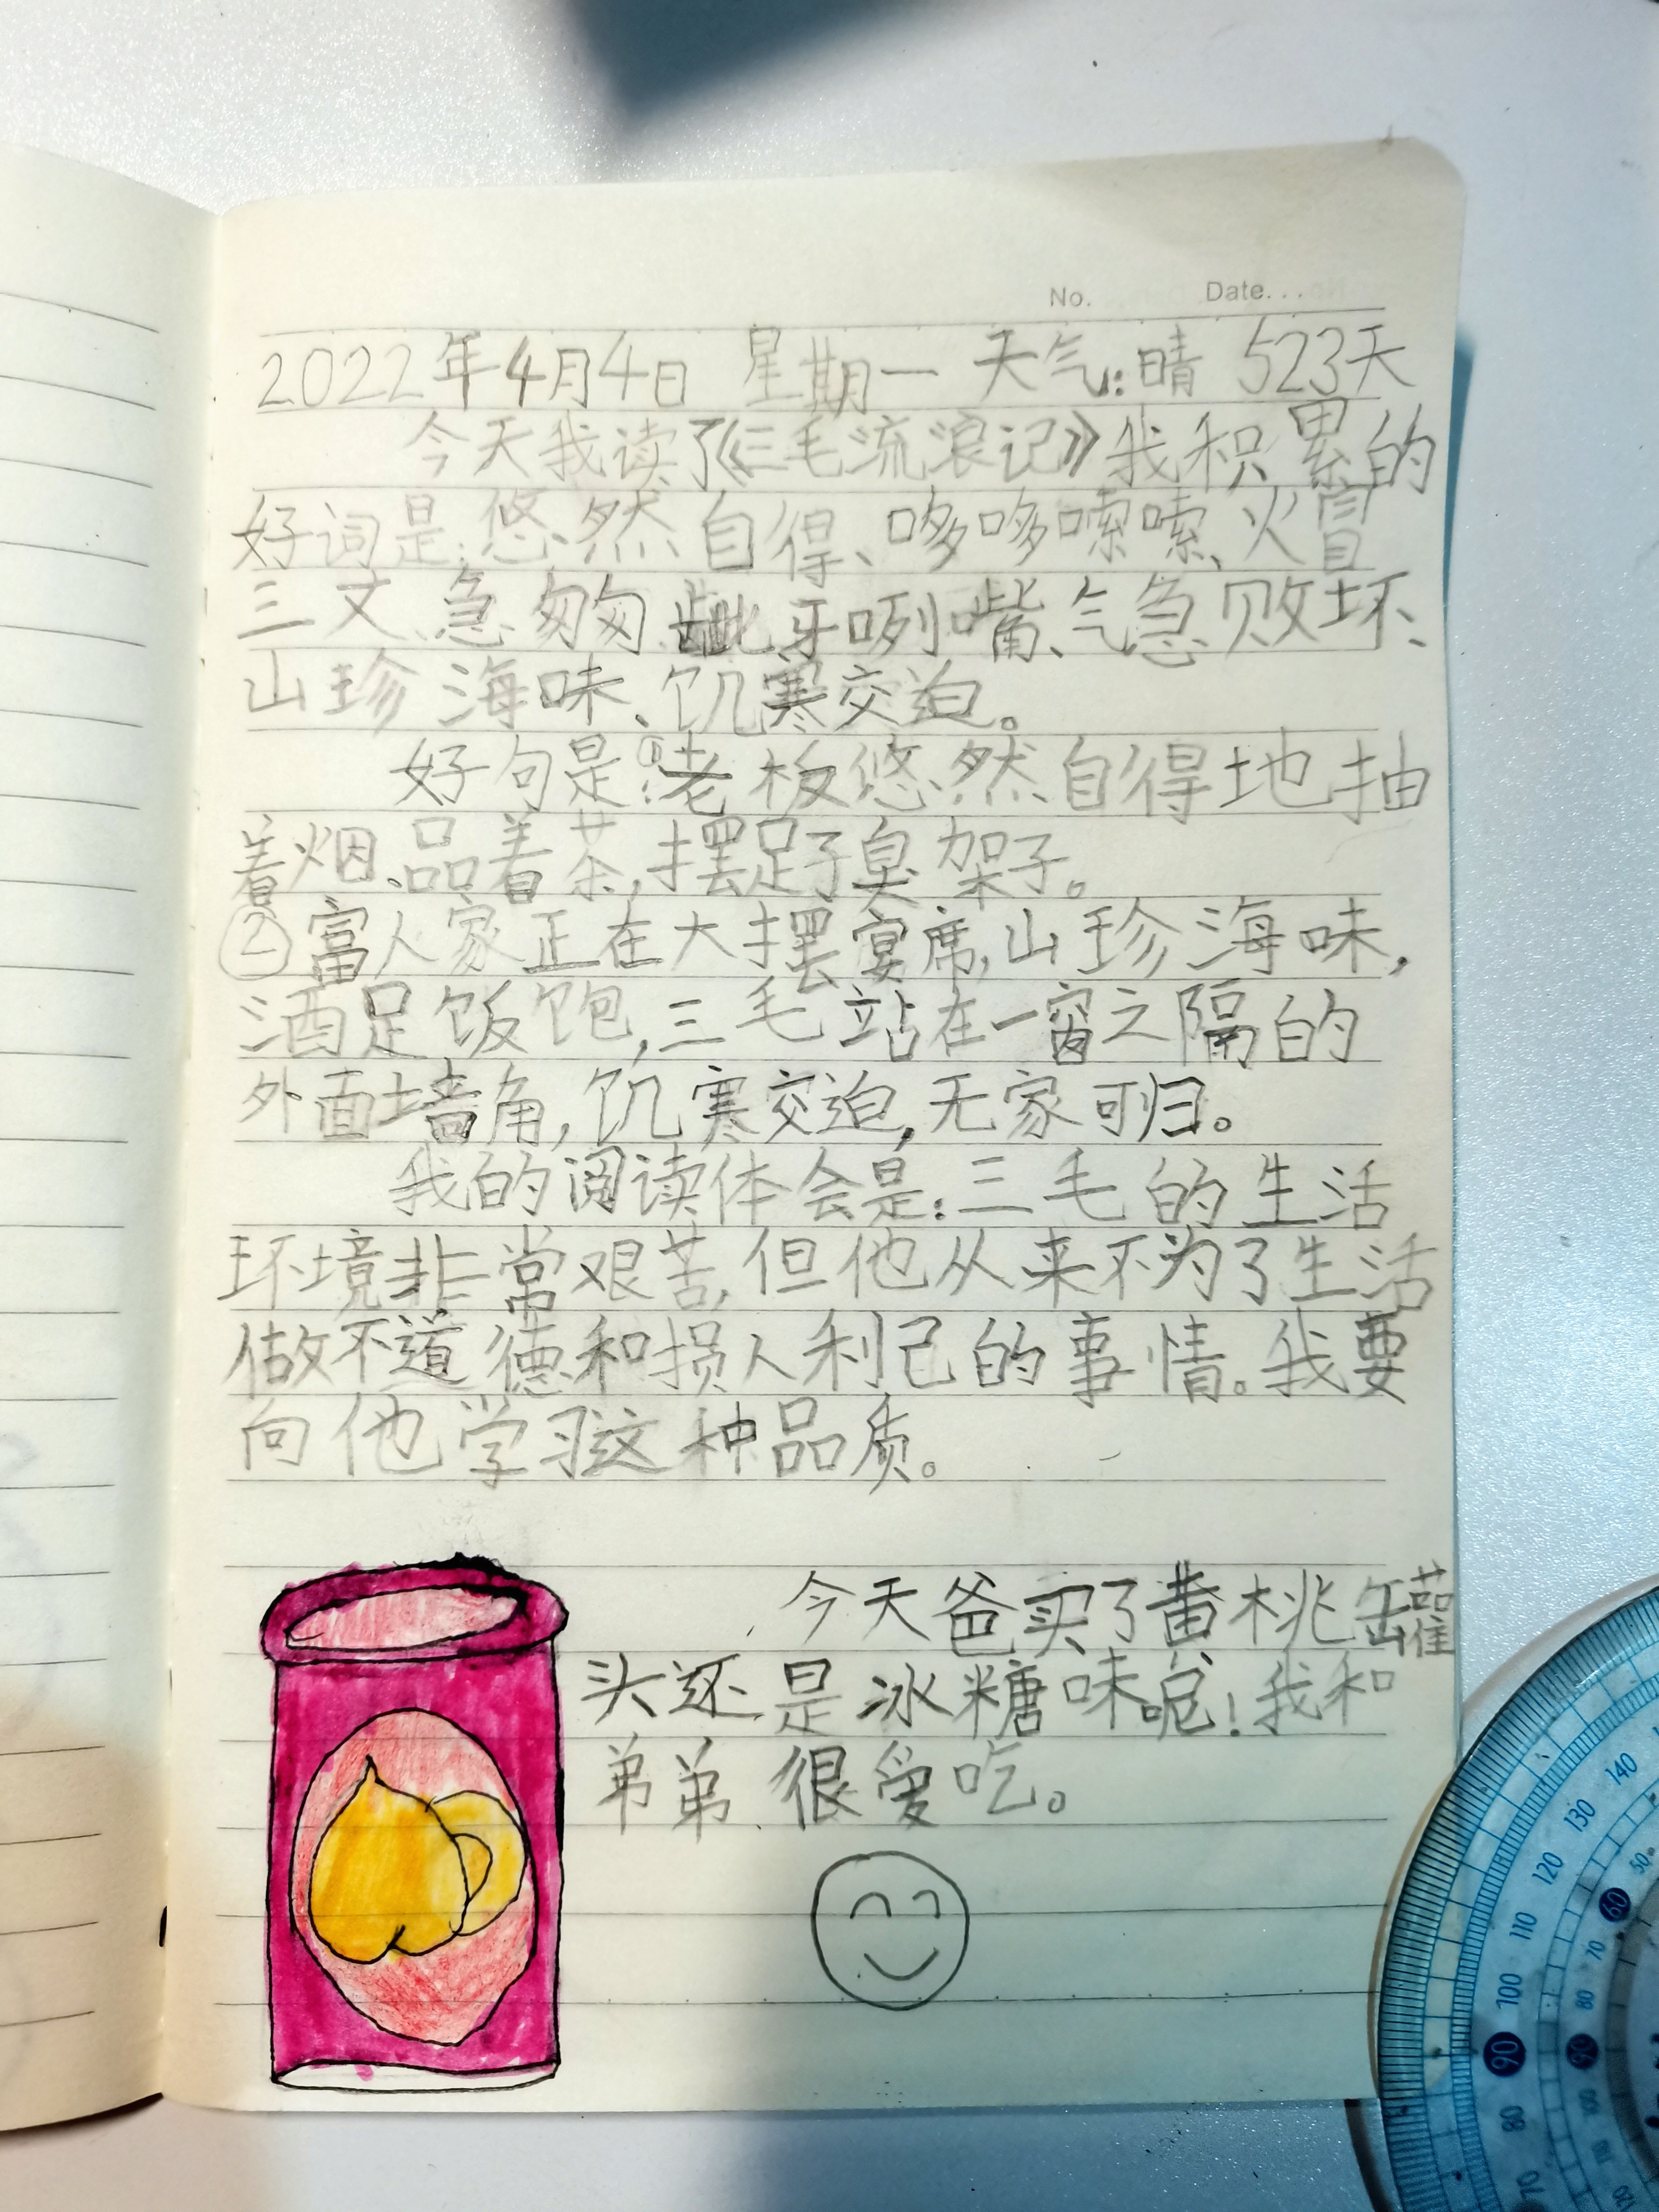 No. Date...
2022年4月4日 星期一 天气:晴 523天
今天我读了《三毛流浪记》我积累的
好词是:悠然自得、哆哆嗦嗦、火冒
三丈、急匆匆、龇牙咧嘴、气急败坏、
山珍海味、饥寒交迫。
好句是:①老板悠然自得地抽
着烟、品着茶,摆足了臭架子。
②富人家正在大摆宴席,山珍海味,
酒足饭饱,三毛站在一窗之隔的
外面墙角,饥寒交迫,无家可归。
我的阅读体会是:三毛的生活
环境非常艰苦,但他从来不为了生活
做不道德和损人利己的事情。我要
向他学习这种品质。
今天爸买了黄桃罐
头还是冰糖味呢!我和
弟弟很爱吃。
140
130
120
110
100
90
80
70
50
60
70
80
90
100
110